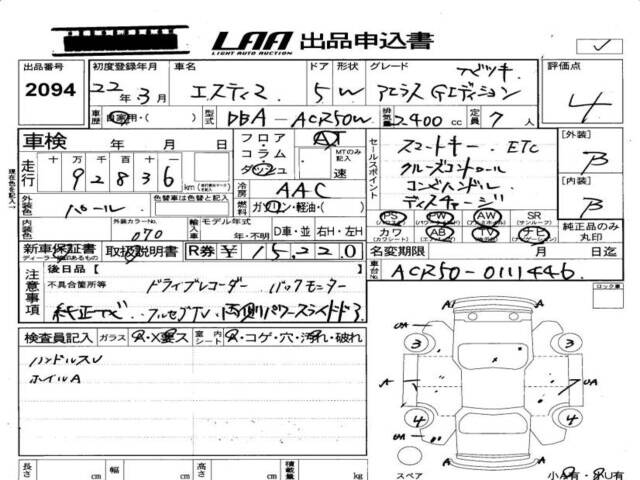 LAA 出品申込書
LIGHT AUTO AUCTION
出品番号 初度登録年月 車名 ドア 形状 グレード ベッキ 評価点
2094 22年3月 エスティマ 5 W アエラス Gエディション 4
車歴 自家用・( ) 型式 DBA-ACR50W 排気量 2400cc 定員 7人
車検 年 月 日 フロア・コラム・ダッシュ AT MTのみ記入 速
走行 十万千百十 92836 km
セールスポイント スマートキー ETC
クルーズコントロール
コンビハンドル
ディスチャージ
[外装] B
[内装] B
冷房 AAC
燃料 ガソリン・軽油・( )
外装色 パール 色替車は色替と記入
内装色 外装カラーNo. 070 輸入車 モデル年式 年・不明 D車・並 右H・左H
PS PW AW SR(サンルーフ)
カワ(カワシート) AB(エアバッグ) TV ナビ(ナビゲーション) 純正品のみ丸印
新車保証書 取扱説明書 R券 ¥15,220 名変期限 月 日迄
ディーラー印のあるもの
車台No. ACR50-0111446
注意事項 後日品( )
不具合箇所等 ドライブレコーダー バックモニター
純正ナビ フルセグTV 両側パワースライドドア
ロック車
検査員記入 ガラス A・X要ス 室内シート A・コゲ・穴・汚れ・破れ
ハンドルスレ
ホイルA
A A
UA 3 3
A A UA
4 4
UA
A A
長さ cm 幅 cm 高さ cm 積載量 kg スペア 小A有・小U有
現在色を記入